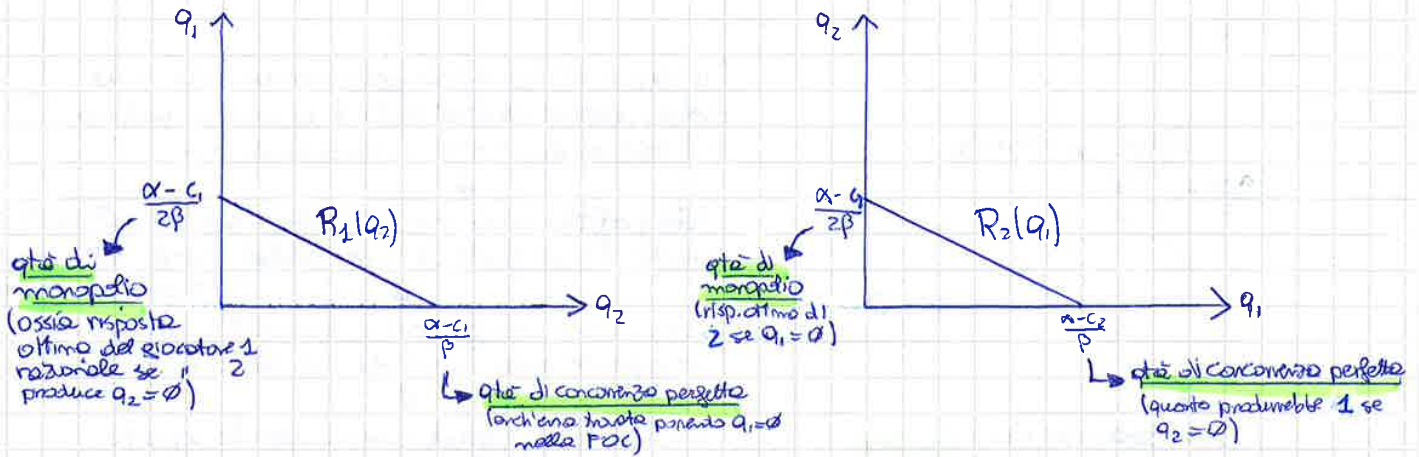 q₁
α - c₁
2β
R₁(q₂)
qtà di
monopolio
(ossia risposta
ottima del giocatore 1
razionale se " 2
produce q₂ = ∅)
α - c₁
β
q₂
qtà di concorrenza perfetta
(anch'essa trovata ponendo q₁ = ∅
nella FOC)
q₂
α - c₁
2β
R₂(q₁)
qtà di
monopolio
(risp. ottima di
2 se q₁ = ∅)
α - c₂
β
q₁
qtà di concorrenza perfetta
(quanto produrrebbe 1 se
q₂ = ∅)